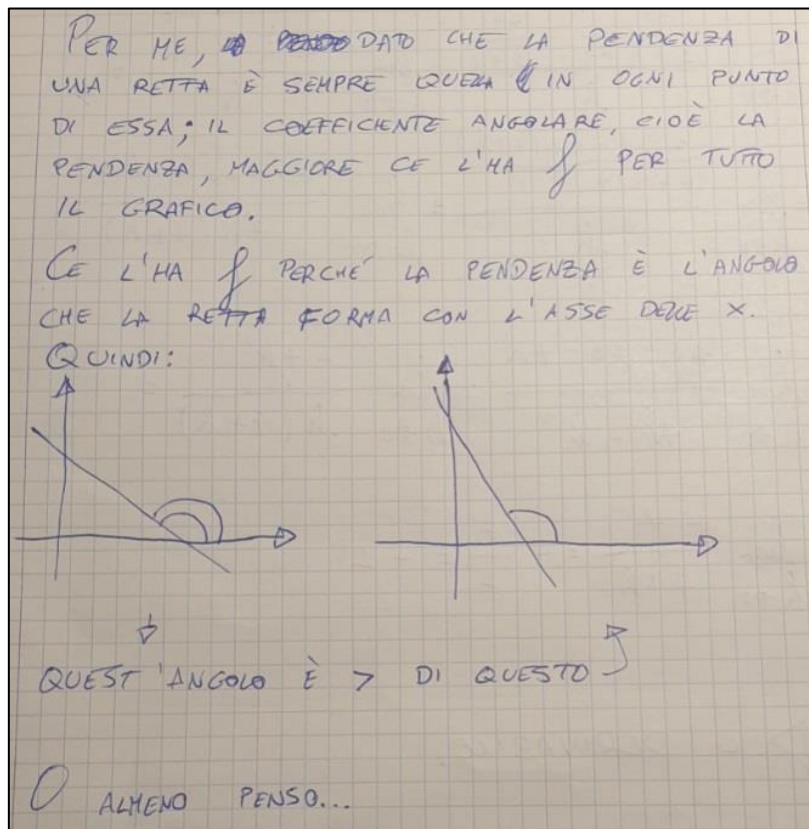 PER ME, DATO CHE LA PENDENZA DI
UNA RETTA È SEMPRE QUELLA IN OGNI PUNTO
DI ESSA; IL COEFFICIENTE ANGOLARE, CIOÈ LA
PENDENZA, MAGGIORE CE L'HA f PER TUTTO
IL GRAFICO.
CE L'HA f PERCHÉ LA PENDENZA È L'ANGOLO
CHE LA RETTA FORMA CON L'ASSE DELLE X.
QUINDI:
QUEST'ANGOLO È > DI QUESTO
O ALMENO PENSO...